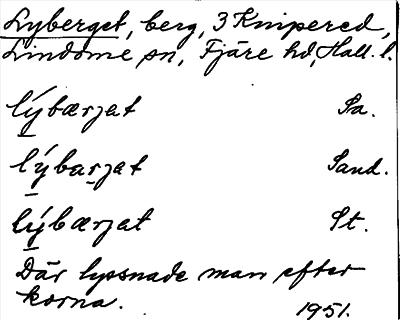 Lyberget, berg, 3 Knipered,
Lindome sn, Fjäre hd, Hall. l.
lýbærjat Sa.
lýbarjat Sand.
lýbærjat St.
Där lyssnade man efter
korna. 1951.